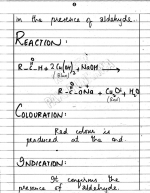 in the presence of aldehyde.
REACTION:
O
R-C-H + 2 Cu(OH)2 + NaOH →
(Blue)
O
R-C-ONa + Cu2O↓ + H2O
(Red)
COLOURATION:
Red colour is
produced at the end.
INDICATION:
It confirms the
presence of aldehyde.